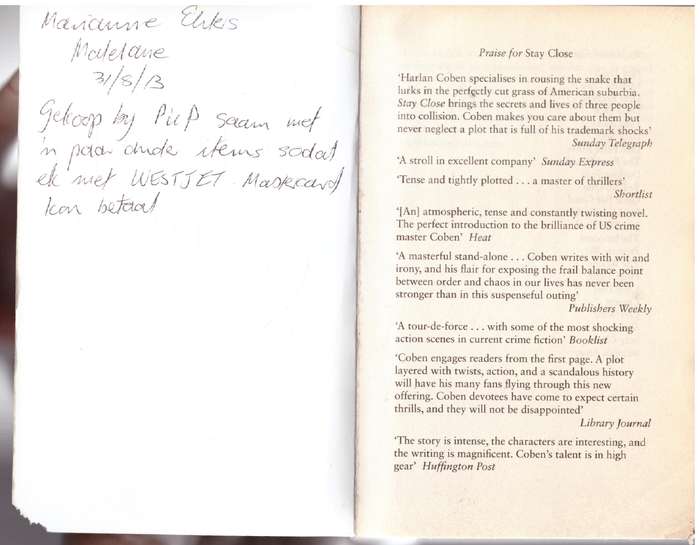 Marianne Ehlers
Matelane
31/8/13
Gekoop by PicP saam met
'n paar ander items sodat
ek met WESTJET Mastercard
kon betaal
Praise for Stay Close
'Harlan Coben specialises in rousing the snake that
lurks in the perfectly cut grass of American suburbia.
Stay Close brings the secrets and lives of three people
into collision. Coben makes you care about them but
never neglect a plot that is full of his trademark shocks'
Sunday Telegraph
'A stroll in excellent company' Sunday Express
'Tense and tightly plotted . . . a master of thrillers'
Shortlist
'[An] atmospheric, tense and constantly twisting novel.
The perfect introduction to the brilliance of US crime
master Coben' Heat
'A masterful stand-alone . . . Coben writes with wit and
irony, and his flair for exposing the frail balance point
between order and chaos in our lives has never been
stronger than in this suspenseful outing'
Publishers Weekly
'A tour-de-force . . . with some of the most shocking
action scenes in current crime fiction' Booklist
'Coben engages readers from the first page. A plot
layered with twists, action, and a scandalous history
will have his many fans flying through this new
offering. Coben devotees have come to expect certain
thrills, and they will not be disappointed'
Library Journal
'The story is intense, the characters are interesting, and
the writing is magnificent. Coben's talent is in high
gear' Huffington Post